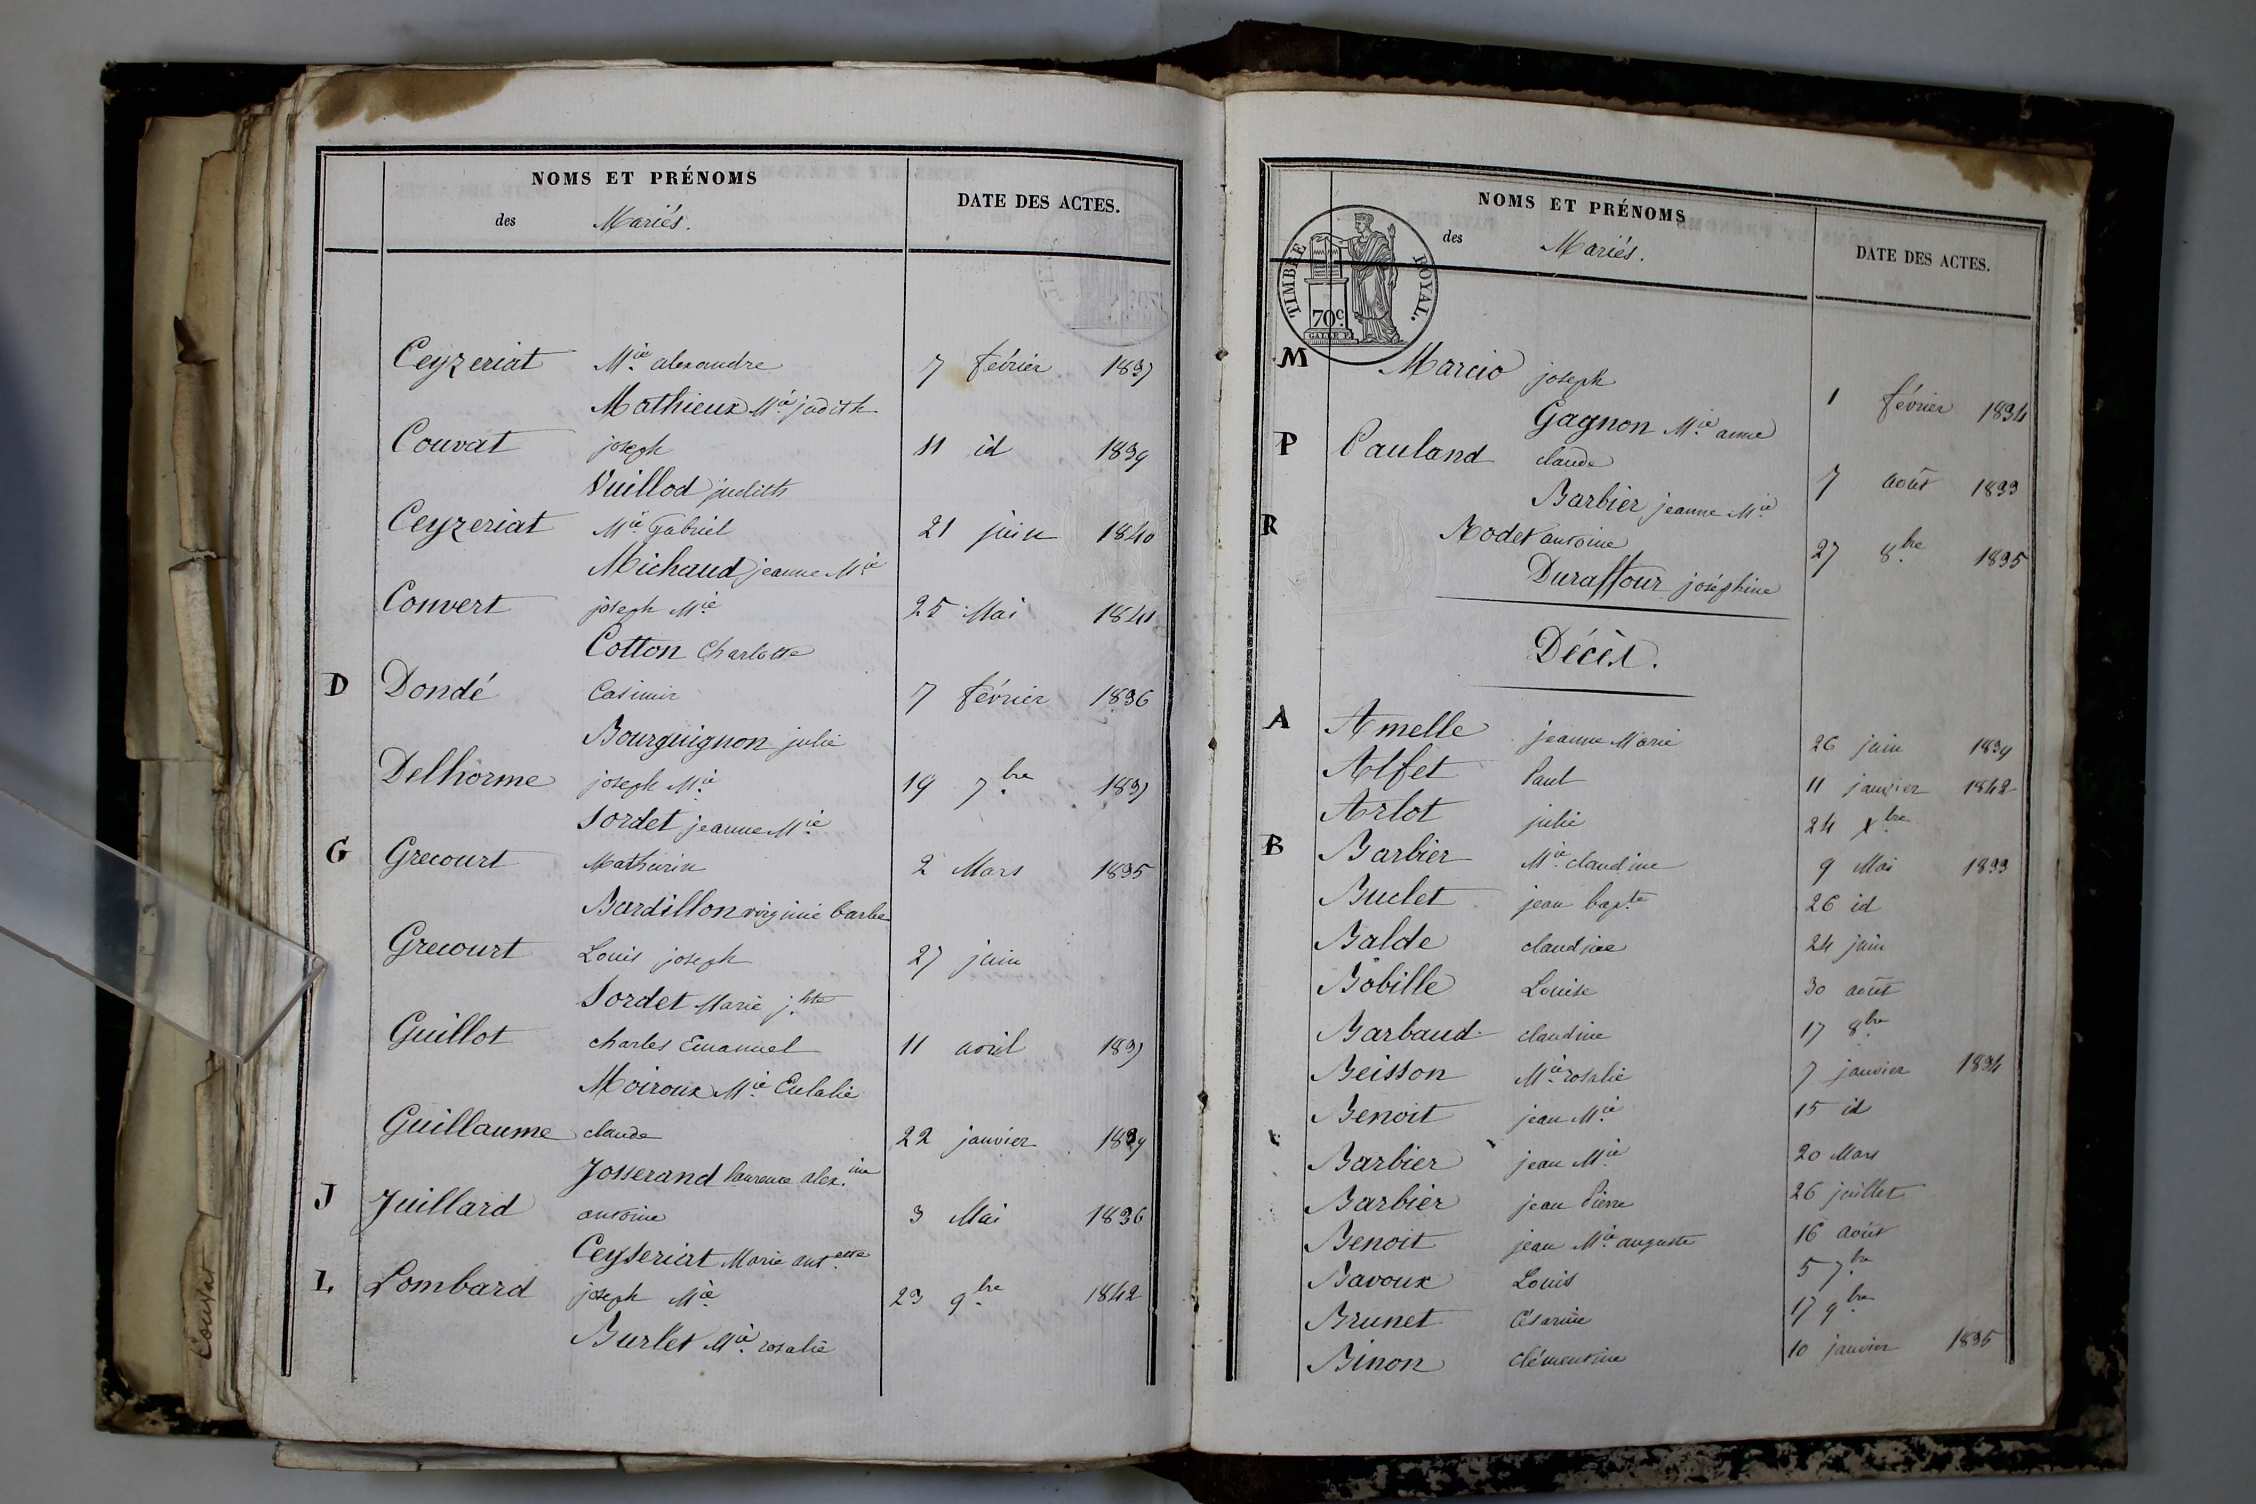 NOMS ET PRÉNOMS
des Mariés.
DATE DES ACTES.
Ceyzeriat Mie alexandre 7 février 1837
Mathieux Mie judith
Couvat joseph 11 id 1839
Vuillod judith
Ceyzeriat Mie Gabriel 21 juin 1840
Michaud jeanne Mie
Convert joseph Mie 25 Mai 1841
Cotton Charlotte
D Dondé Casimir 7 février 1836
Bourguignon julie
Delhorme joseph Mie 19 7bre 1837
Sordet jeanne Mie
G Grecourt Mathurin 2 Mars 1835
Bardillon virginie barbe
Grecourt Louis joseph 27 juin
Sordet Marie jhte
Guillot charles Emanuel 11 avril 1837
Moiroux Mie Eulalie
Guillaume claude 22 janvier 1839
Josserand laurence alex.ine
J Juillard antoine 3 Mai 1836
Ceyseriat Marie ant.ette
L Lombard joseph Mie 23 9bre 1842
Burlet Mie rosalie
NOMS ET PRÉNOMS
des Mariés.
DATE DES ACTES.
TIMBRE ROYAL.
70c.
M Marcio joseph 1 février 1834
Gagnon Mie anne
P Pauland claude 7 août 1833
Barbier jeanne Mie
R Rodet antoine 27 8bre 1835
Duraffour joséphine
Décès.
A Amelle jeanne Marie 26 juin 1839
Alfet Paul 11 janvier 1842
Arlot julie 24 xbre
B Barbier Mie claudine 9 Mai 1833
Buclet jean bapte 26 id
Balde claudine 24 juin
Bobille Louise 30 août
Barbaud claudine 17 8bre
Beisson Mie rosalie 7 janvier 1834
Benoit jean Mie 15 id
Barbier jean Mie 20 Mars
Barbier jean Pierre 26 juillet
Benoit jean Mie auguste 16 août
Bavoux Louis 5 7bre
Brunet Césarine 17 9bre
Binon Clémentine 10 janvier 1835